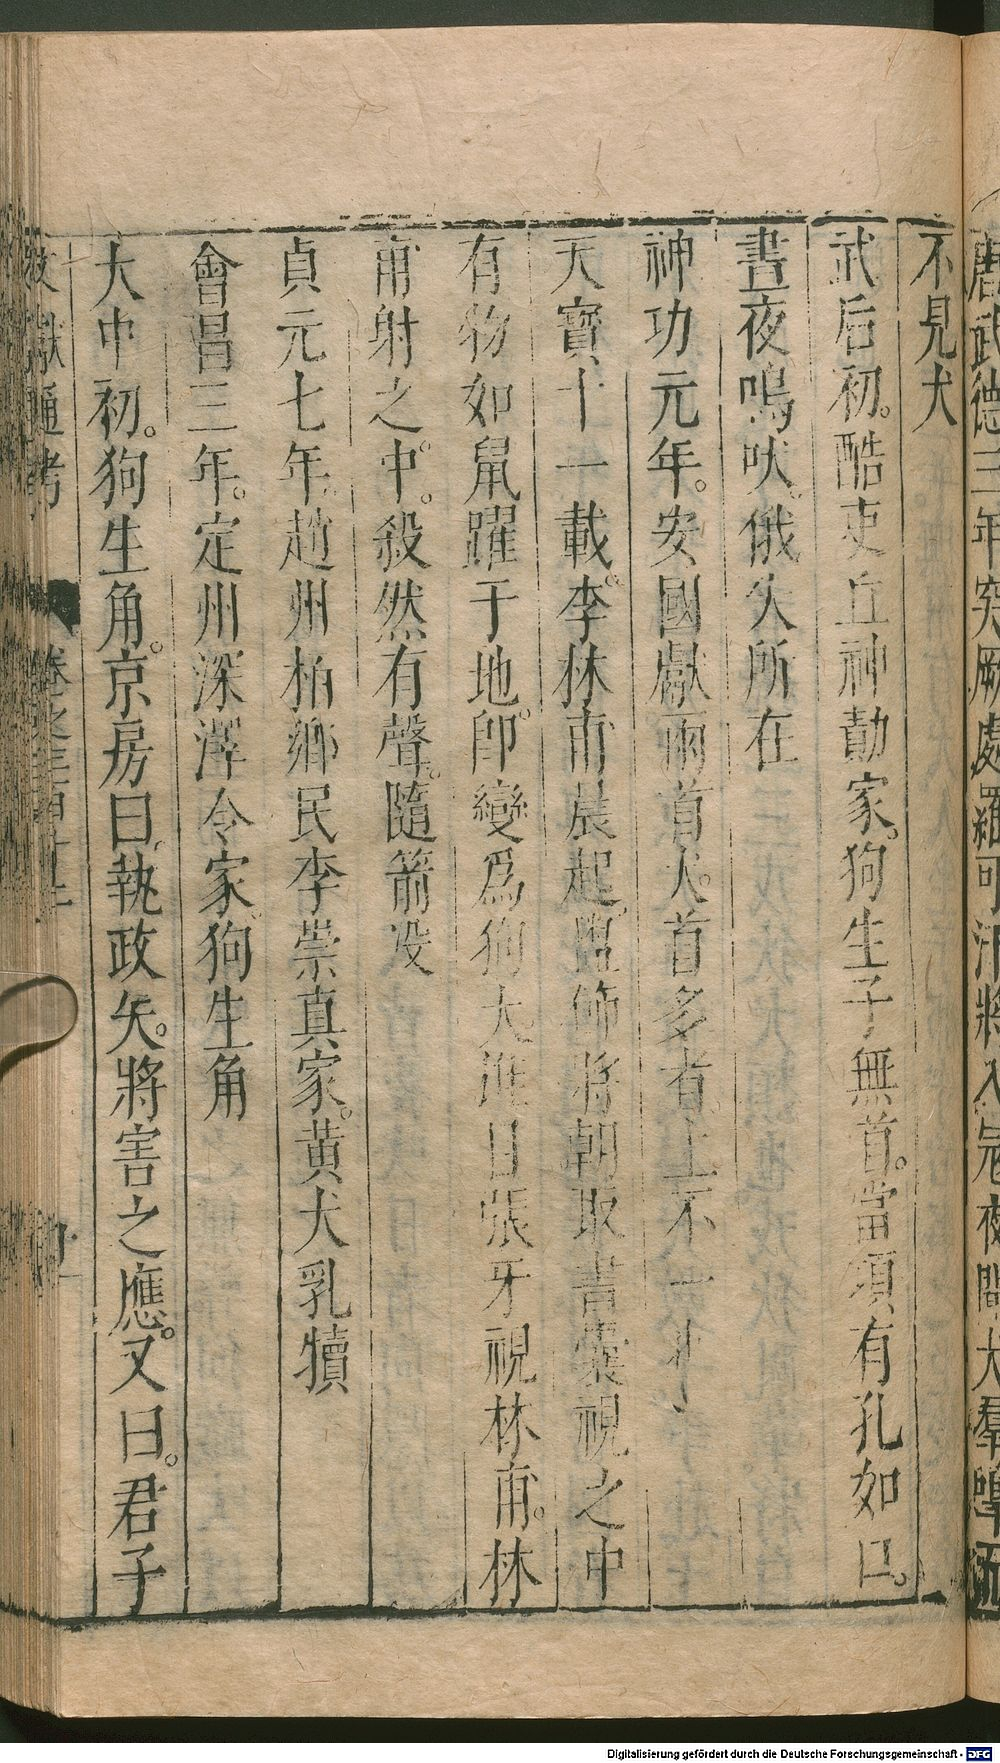 唐武德三年突厥處羅可汗將入寇夜聞犬羣嘷而
不見犬
武后初。酷吏丘神勣家。狗生子無首。當項有孔如口。
晝夜鳴吠。俄失所在
神功元年。安國獻兩首犬。首多者。上不一也
天寶十一載。李林甫晨起。盥飾將朝取書囊視之中
有物如鼠躍于地。即變為狗。大〿目張牙視林甫。林
甫射之。中。殺然有聲。隨箭沒
貞元七年。趙州柏鄉民李崇真家。黃犬乳犢
會昌三年。定州深澤令家。狗生角
大中初。狗生角。京房曰。執政矢。將害之應。又曰。君子
文獻通考 卷之三百十二
Digitalisierung gefördert durch die Deutsche Forschungsgemeinschaft - DFG